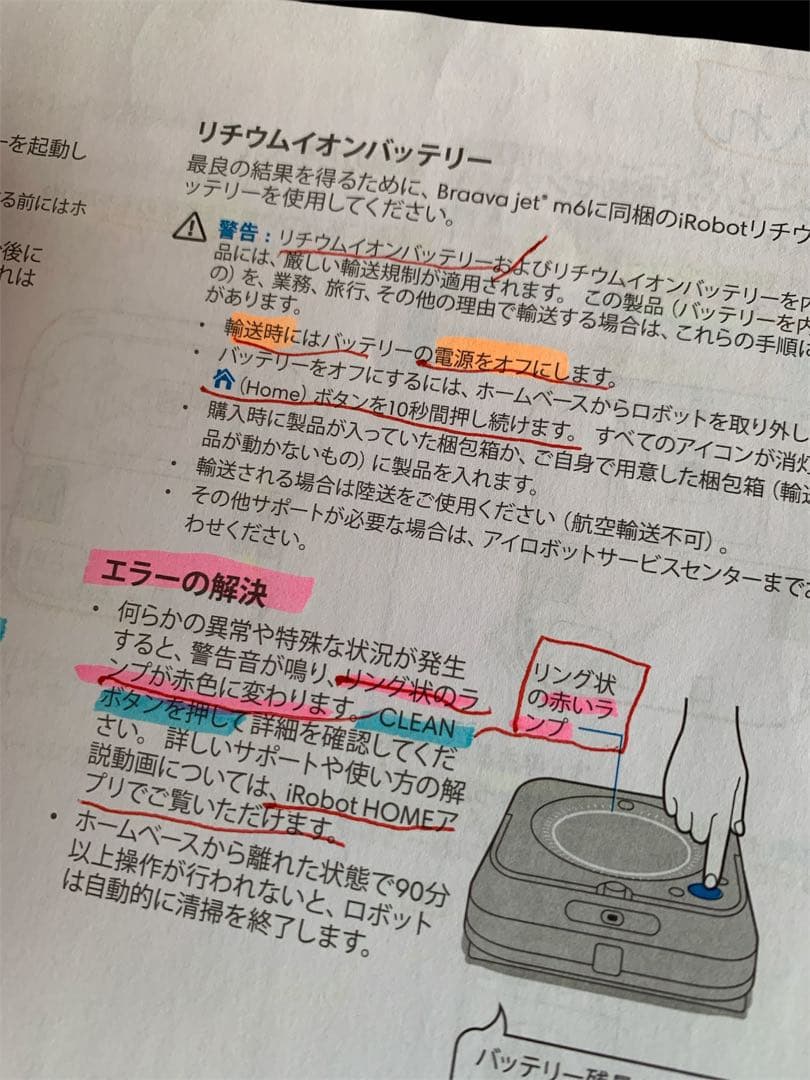 ーを起動し
る前にはホ
後に
れは
リチウムイオンバッテリー
最良の結果を得るために、Braava jet® m6に同梱のiRobotリチウ
ッテリーを使用してください。
警告：リチウムイオンバッテリーおよびリチウムイオンバッテリーを内
品には、厳しい輸送規制が適用されます。この製品（バッテリーを内
の）を、業務、旅行、その他の理由で輸送する場合は、これらの手順に
があります。
• 輸送時にはバッテリーの電源をオフにします。
• バッテリーをオフにするには、ホームベースからロボットを取り外し
（Home）ボタンを10秒間押し続けます。すべてのアイコンが消灯
• 購入時に製品が入っていた梱包箱か、ご自身で用意した梱包箱（輸送
品が動かないもの）に製品を入れます。
• 輸送される場合は陸送をご使用ください（航空輸送不可）。
• その他サポートが必要な場合は、アイロボットサービスセンターまでお
わせください。
エラーの解決
• 何らかの異常や特殊な状況が発生
すると、警告音が鳴り、リング状のラ
ンプが赤色に変わります。CLEAN
ボタンを押して詳細を確認してくだ
さい。詳しいサポートや使い方の解
説動画については、iRobot HOMEア
プリでご覧いただけます。
• ホームベースから離れた状態で90分
以上操作が行われないと、ロボット
は自動的に清掃を終了します。
リング状
の赤いラ
ンプ
バッテリー残